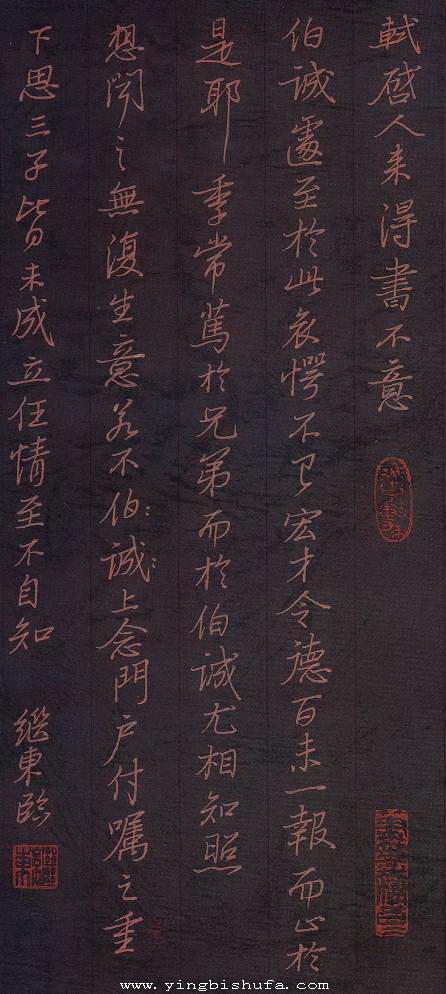 軾啓人来得書不意
伯誠遽至於此哀愕不已宏才令德百未一報而止於
是耶季常篤於兄弟而於伯誠尤相知照
想聞之無復生意若不伯誠上念門户付囑之重
下思三子皆未成立任情至不自知 繼東臨
www.yingbishufa.com